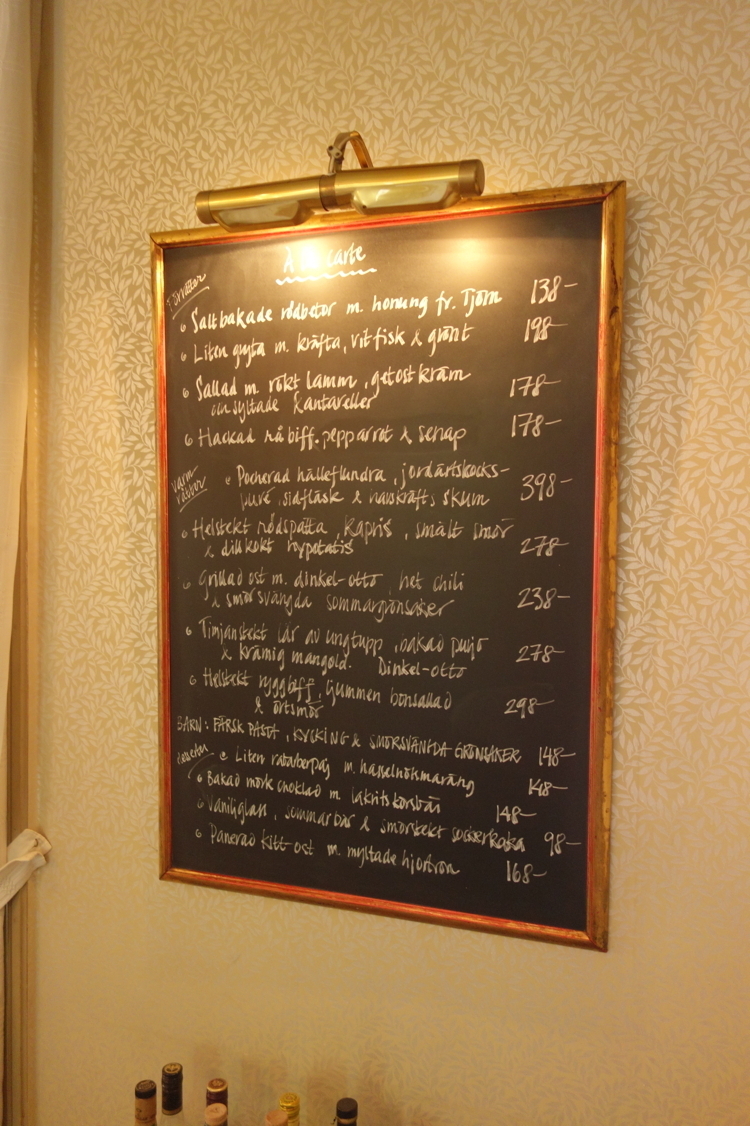 À la carte
Förrätter
Saltbakade rödbetor m. honung fr. Tjörn 138-
Liten gryta m. kräfta, vit fisk & grönt 198-
Sallad m. rökt lamm, getostkräm 178-
och syltade kantareller
Hackad råbiff. pepparrot & senap 178-
Varm-
rätter
Pocherad hälleflundra, jordärtskocks- 398-
puré, sidfläsk & havskräfts skum
Helstekt rödspätta, kapris, smält smör
& dillkokt nypotatis 278-
Grillad ost m. dinkel-otto, het chili
& smörsvängda sommargrönsaker 238-
Timjanstekt lår av ungtupp, bakad purjo
& krämig mangold. Dinkel-otto 278-
Helstekt ryggbiff, Gummen bönsallad
& örtsmör 298-
BARN: FÄRSK PASTA, KYCKING & SMÖRSVÄNGDA GRÖNSAKER 148-
desserter
Liten rabarberpaj m. hasselnötmaräng 148-
Bakad mörk choklad m. lakritskörsbär 148-
Vaniljglass, sommarbär & smörstekt sockerkaka 98-
Panerad kitt-ost m. myltade hjortron 168-